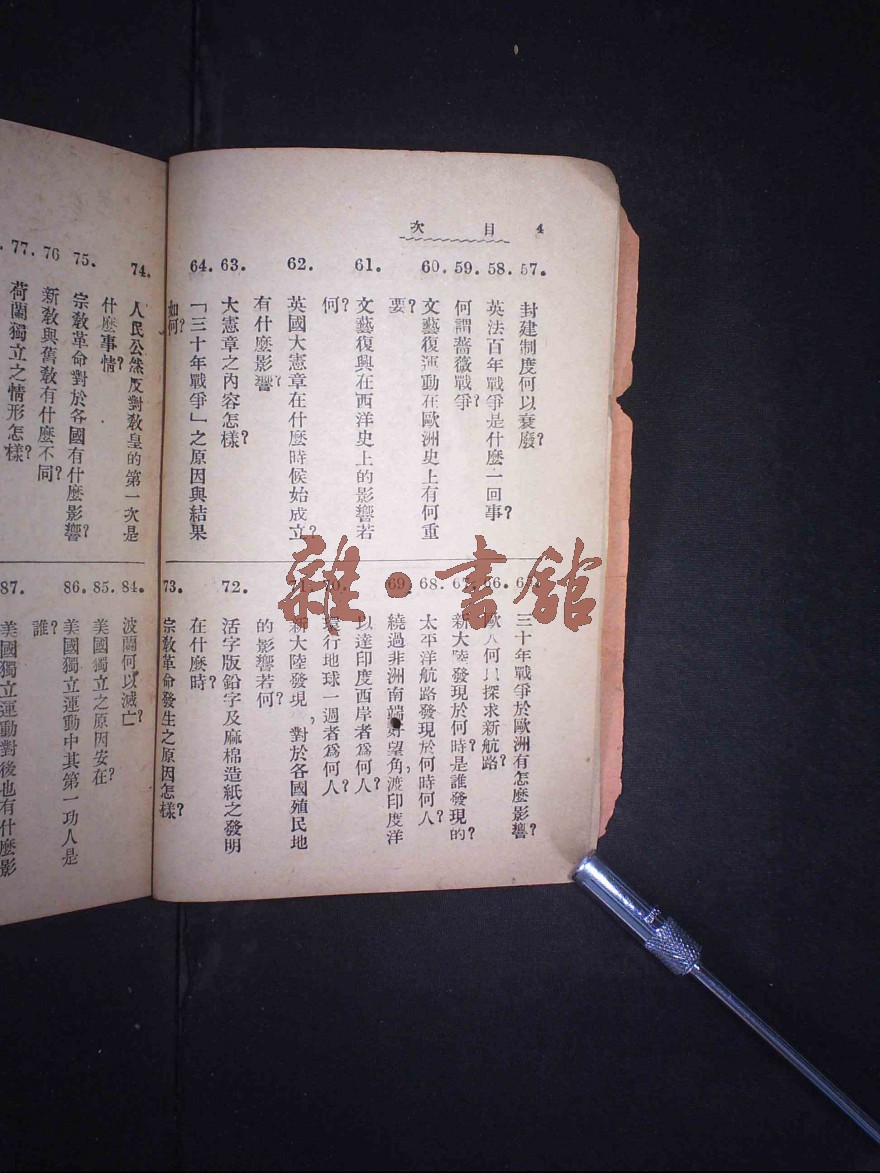 目次 4
57. 封建制度何以衰廢?
58. 英法百年戰爭是什麼一回事?
59. 何謂薔薇戰爭?
60. 文藝復運動在歐洲史上有何重
要?
61. 文藝復興在西洋史上的影響若
何?
62. 英國大憲章在什麼時候始成立?
有什麼影響?
63. 大憲章之內容怎樣?
64. 「三十年戰爭」之原因與結果
如何?
三十年戰爭於歐洲有怎麼影響?
66. 歐人何以探求新航路?
67. 新大陸發現於何時?是誰發現的?
68. 太平洋航路發現於何時何人?
69. 繞過非洲南端好望角,渡印度洋
以達印度西岸者爲何人?
70. 環行地球一週者爲何人?
71. 新大陸發現,對於各國殖民地
的影響若何?
72. 活字版鉛字及麻棉造紙之發明
在什麼時?
73. 宗教革命發生之原因怎樣?
74. 人民公然反對教皇的第一次是
什麼事情?
75. 宗教革命對於各國有什麼影響?
76 新教與舊教有什麼不同?
77. 荷蘭獨立之情形怎樣?
84. 波蘭何以滅亡?
85. 美國獨立之原因安在?
86. 美國獨立運動中其第一功人是
誰?
87. 美國獨立運動對後也有什麼影
雜·書館